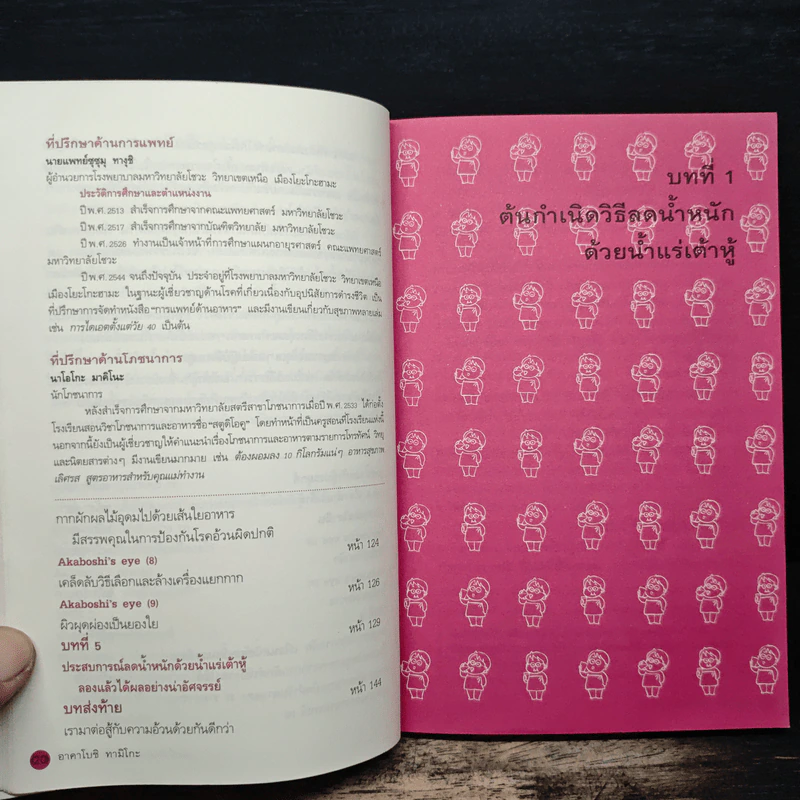 ที่ปรึกษาด้านการแพทย์
นายแพทย์ซุซุมุ ทางุชิ
ผู้อำนวยการโรงพยาบาลมหาวิทยาลัยโชวะ วิทยาเขตเหนือ เมืองโยะโกะฮามะ
ประวัติการศึกษาและตำแหน่งงาน
ปี พ.ศ. 2513 สำเร็จการศึกษาจากคณะแพทยศาสตร์ มหาวิทยาลัยโชวะ
ปี พ.ศ. 2517 สำเร็จการศึกษาจากบัณฑิตวิทยาลัย มหาวิทยาลัยโชวะ
ปี พ.ศ. 2526 ทำงานเป็นเจ้าหน้าที่การศึกษาแผนกอายุรศาสตร์ คณะแพทยศาสตร์
มหาวิทยาลัยโชวะ
ปี พ.ศ. 2544 จนถึงปัจจุบัน ประจำอยู่ที่โรงพยาบาลมหาวิทยาลัยโชวะ วิทยาเขตเหนือ
เมืองโยะโกะฮามะ ในฐานะผู้เชี่ยวชาญด้านโรคที่เกี่ยวเนื่องกับอุปนิสัยการดำรงชีวิต เป็น
ที่ปรึกษาการจัดทำหนังสือ "การแพทย์ด้านอาหาร" และมีงานเขียนเกี่ยวกับสุขภาพหลายเล่ม
เช่น การไดเอตตั้งแต่วัย 40 เป็นต้น
ที่ปรึกษาด้านโภชนาการ
นาโอโกะ มาคิโนะ
นักโภชนาการ
หลังสำเร็จการศึกษาจากมหาวิทยาลัยสตรีสาขาโภชนาการเมื่อปี พ.ศ. 2533 ได้ก่อตั้ง
โรงเรียนสอนวิชาโภชนาการและอาหารชื่อ "สตูดิโอคู" โดยทำหน้าที่เป็นครูสอนที่โรงเรียนแห่งนี้
นอกจากนี้ยังเป็นผู้เชี่ยวชาญให้คำแนะนำเรื่องโภชนาการและอาหารตามรายการโทรทัศน์ วิทยุ
และนิตยสารต่างๆ มีงานเขียนมากมาย เช่น ต้องผอมลง 10 กิโลกรัมแน่ๆ อาหารสุขภาพ
เลิศรส สูตรอาหารสำหรับคุณแม่ทำงาน
กากผักผลไม้อุดมไปด้วยเส้นใยอาหาร
มีสรรพคุณในการป้องกันโรคอ้วนผิดปกติ หน้า 124
Akaboshi's eye (8)
เคล็ดลับวิธีเลือกและล้างเครื่องแยกกาก หน้า 126
Akaboshi's eye (9)
ผิวผุดผ่องเป็นยองใย หน้า 129
บทที่ 5
ประสบการณ์ลดน้ำหนักด้วยน้ำแร่เต้าหู้
ลองแล้วได้ผลอย่างน่าอัศจรรย์ หน้า 144
บทส่งท้าย
เรามาต่อสู้กับความอ้วนด้วยกันดีกว่า
20 อาคาโบชิ ทามิโกะ
บทที่ 1
ต้นกำเนิดวิธีลดน้ำหนัก
ด้วยน้ำแร่เต้าหู้